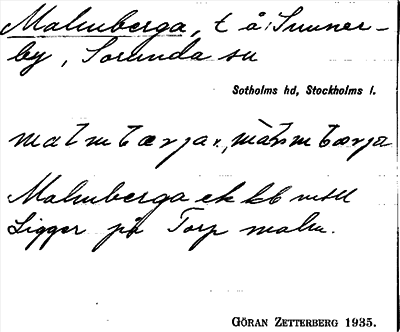 Malmberga, t å Sunner-
by, Sorunda sn
Sotholms hd, Stockholms l.
Malmberga ek kb
Ligger på Torp malm.
GÖRAN ZETTERBERG 1935.